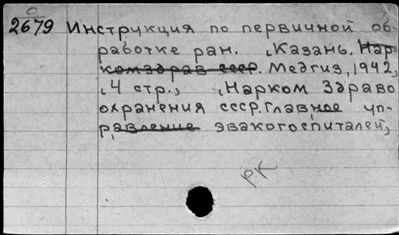 2679 Инструкция по первичной об-
работке ран. , Казань, Нар-
комздрав ссср. Медгиз, 1942,
, 4 стр., , Нарком Здраво
охранения ссср. Главное уп-
равление эвакогоспиталей,
РК